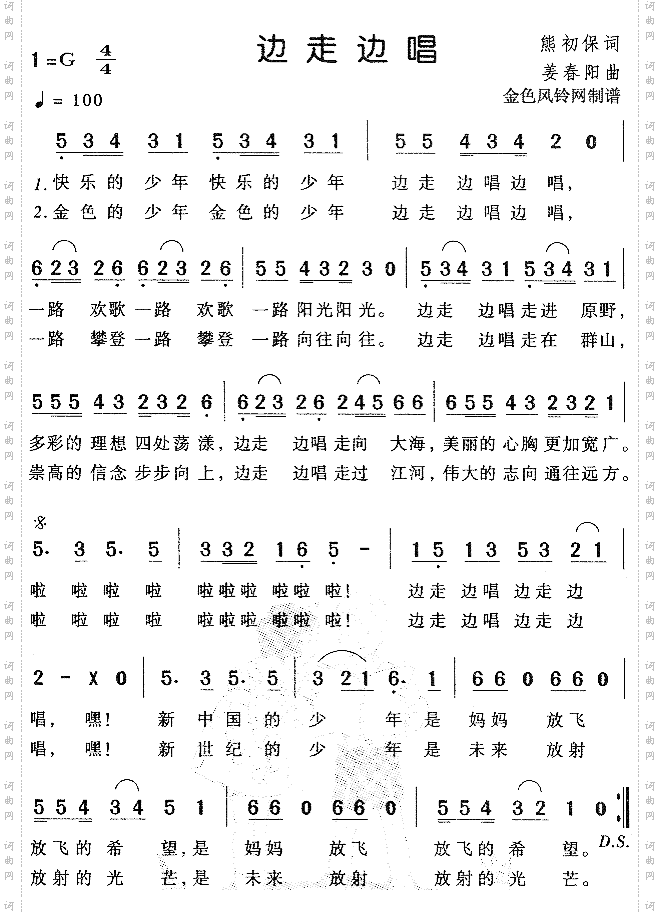 边走边唱
1=G 4/4
♩=100
熊初保词
姜春阳曲
金色风铃网制谱
5 3 4 3 1 5 3 4 3 1 | 5 5 4 3 4 2 0 |
1.快乐的 少年 快乐的 少年 边走 边唱边 唱,
2.金色的 少年 金色的 少年 边走 边唱边 唱,
6 2 3 2 6 6 2 3 2 6 | 5 5 4 3 2 3 0 | 5 3 4 3 1 5 3 4 3 1 |
一路 欢歌 一路 欢歌 一路 阳光阳 光。 边走 边唱 走进 原野,
一路 攀登 一路 攀登 一路 向往向 往。 边走 边唱 走在 群山,
5 5 5 4 3 2 3 2 6 | 6 2 3 2 6 2 4 5 6 6 | 6 5 5 4 3 2 3 2 1 |
多彩的 理想 四处荡 漾,边走 边唱 走向 大海,美丽的 心胸 更加宽 广。
崇高的 信念 步步向 上,边走 边唱 走过 江河,伟大的 志向 通往远 方。
5. 3 5. 5 | 3 3 2 1 6 5 - | 1 5 1 3 5 3 2 1 |
啦 啦 啦 啦 啦啦啦 啦啦 啦! 边走 边唱 边走 边
啦 啦 啦 啦 啦啦啦 啦啦 啦! 边走 边唱 边走 边
2 - X 0 | 5. 3 5. 5 | 3 3 2 1 6. 1 | 6 6 0 6 6 0 |
唱, 嘿! 新 中 国 的 少 年 是 妈妈 放飞
唱, 嘿! 新 世 纪 的 少 年 是 未来 放射
5 5 4 3 4 5 1 | 6 6 0 6 6 0 | 5 5 4 3 2 1 0 :|
放飞的 希 望,是 妈妈 放飞 放飞的 希 望。 D.S.
放射的 光 芒,是 未来 放射 放射的 光 芒。
词曲网